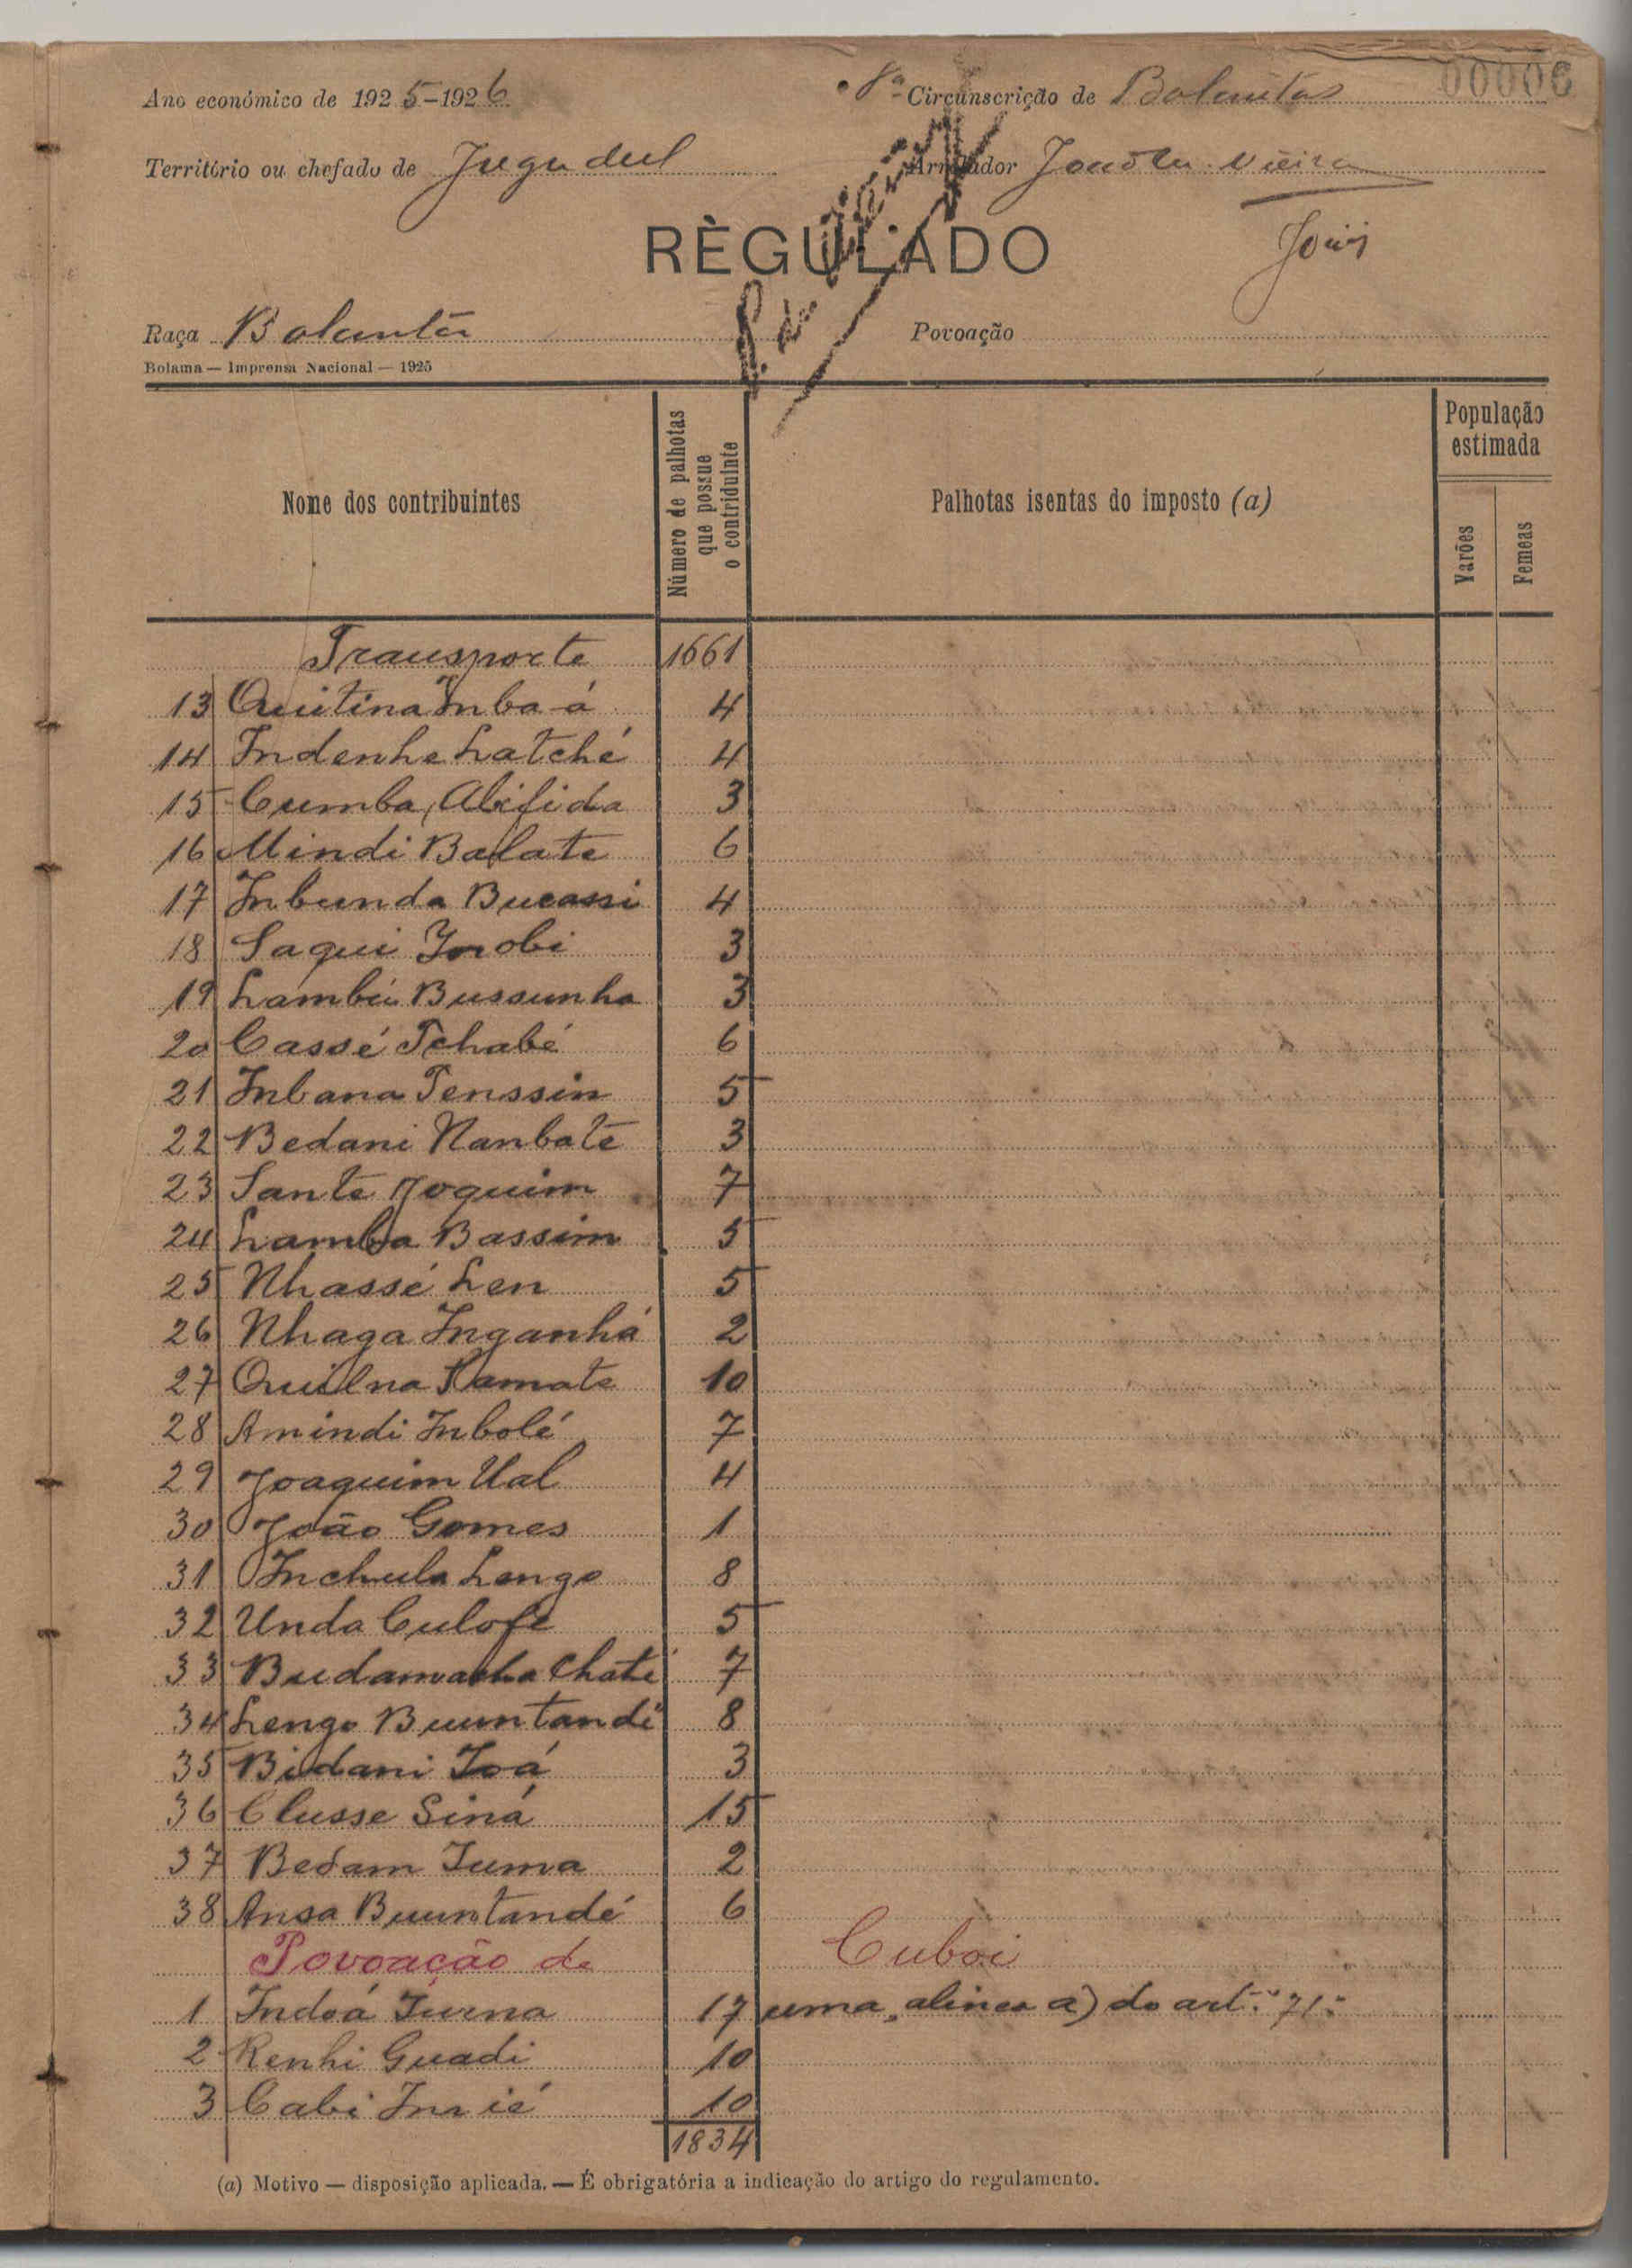 00006
Ano económico de 1925-1926 8ª Circunscrição de Balantas
Território ou chefado de Jugudul Arrolador Vieira
RÈGULADO
Raça Balanta Povoação
Bolama — Imprensa Nacional — 1925
Nome dos contribuintes
Número de palhotas que possue o contriduinte
Palhotas isentas do imposto (a)
População estimada
Varões
Femeas
Transporte 1661
13 Quitina Inba-á 4
14 Indenhe Latché 4
15 Cumba Abifida 3
16 Mindi Balate 6
17 Inbunda Bucassi 4
18 Saqui Inobi 3
19 Lambú Bussunha 3
20 Cassé Tchabé 6
21 Inbana Tenssin 5
22 Bedani Nanbate 3
23 Sante Joquim 7
24 Lamba Bassim 5
25 Nhassé Len 5
26 Nhaga Inganhá 2
27 Quilna Ramate 10
28 Amindi Inbolé 7
29 Joaquim Ual 4
30 João Gomes 1
31 Inchula Lengo 8
32 Unda Culofe 5
33 Chaté 7
34 Lengo Buuntandé 8
35 Bidani Ioá 3
36 Clusse Siná 15
37 Bedam Iuma 2
38 Ansa Buuntandé 6
Povoação de Cuboi
1 Indoá Iurna 17 uma, alinea a) do artº 71º
2 Renhi Guadi 10
3 Cabi 10
1834
(a) Motivo — disposição aplicada. — É obrigatória a indicação do artigo do regulamento.